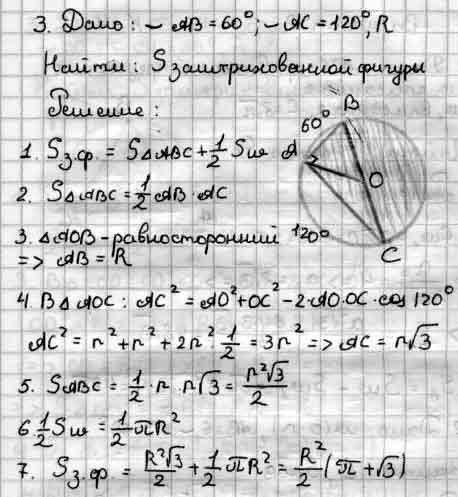 3. Дано: ⌣ AB = 60°; ⌣ AC = 120°, R
Найти: S заштрихованной фигуры
Решение:
1. Sз.ф. = S△ABC + 1/2 Sш
2. S△ABC = 1/2 AB · AC
3. △AOB - равносторонний
=> AB = R
4. В △AOC: AC² = AO² + OC² - 2·AO·OC·cos 120°
AC² = r² + r² + 2r² · 1/2 = 3r² => AC = r√3
5. SABC = 1/2 · r · r√3 = r²√3/2
6 1/2 Sш = 1/2 πR²
7. Sз.ф. = R²√3/2 + 1/2 πR² = R²/2 (π + √3)
B
60°
A
O
120°
C